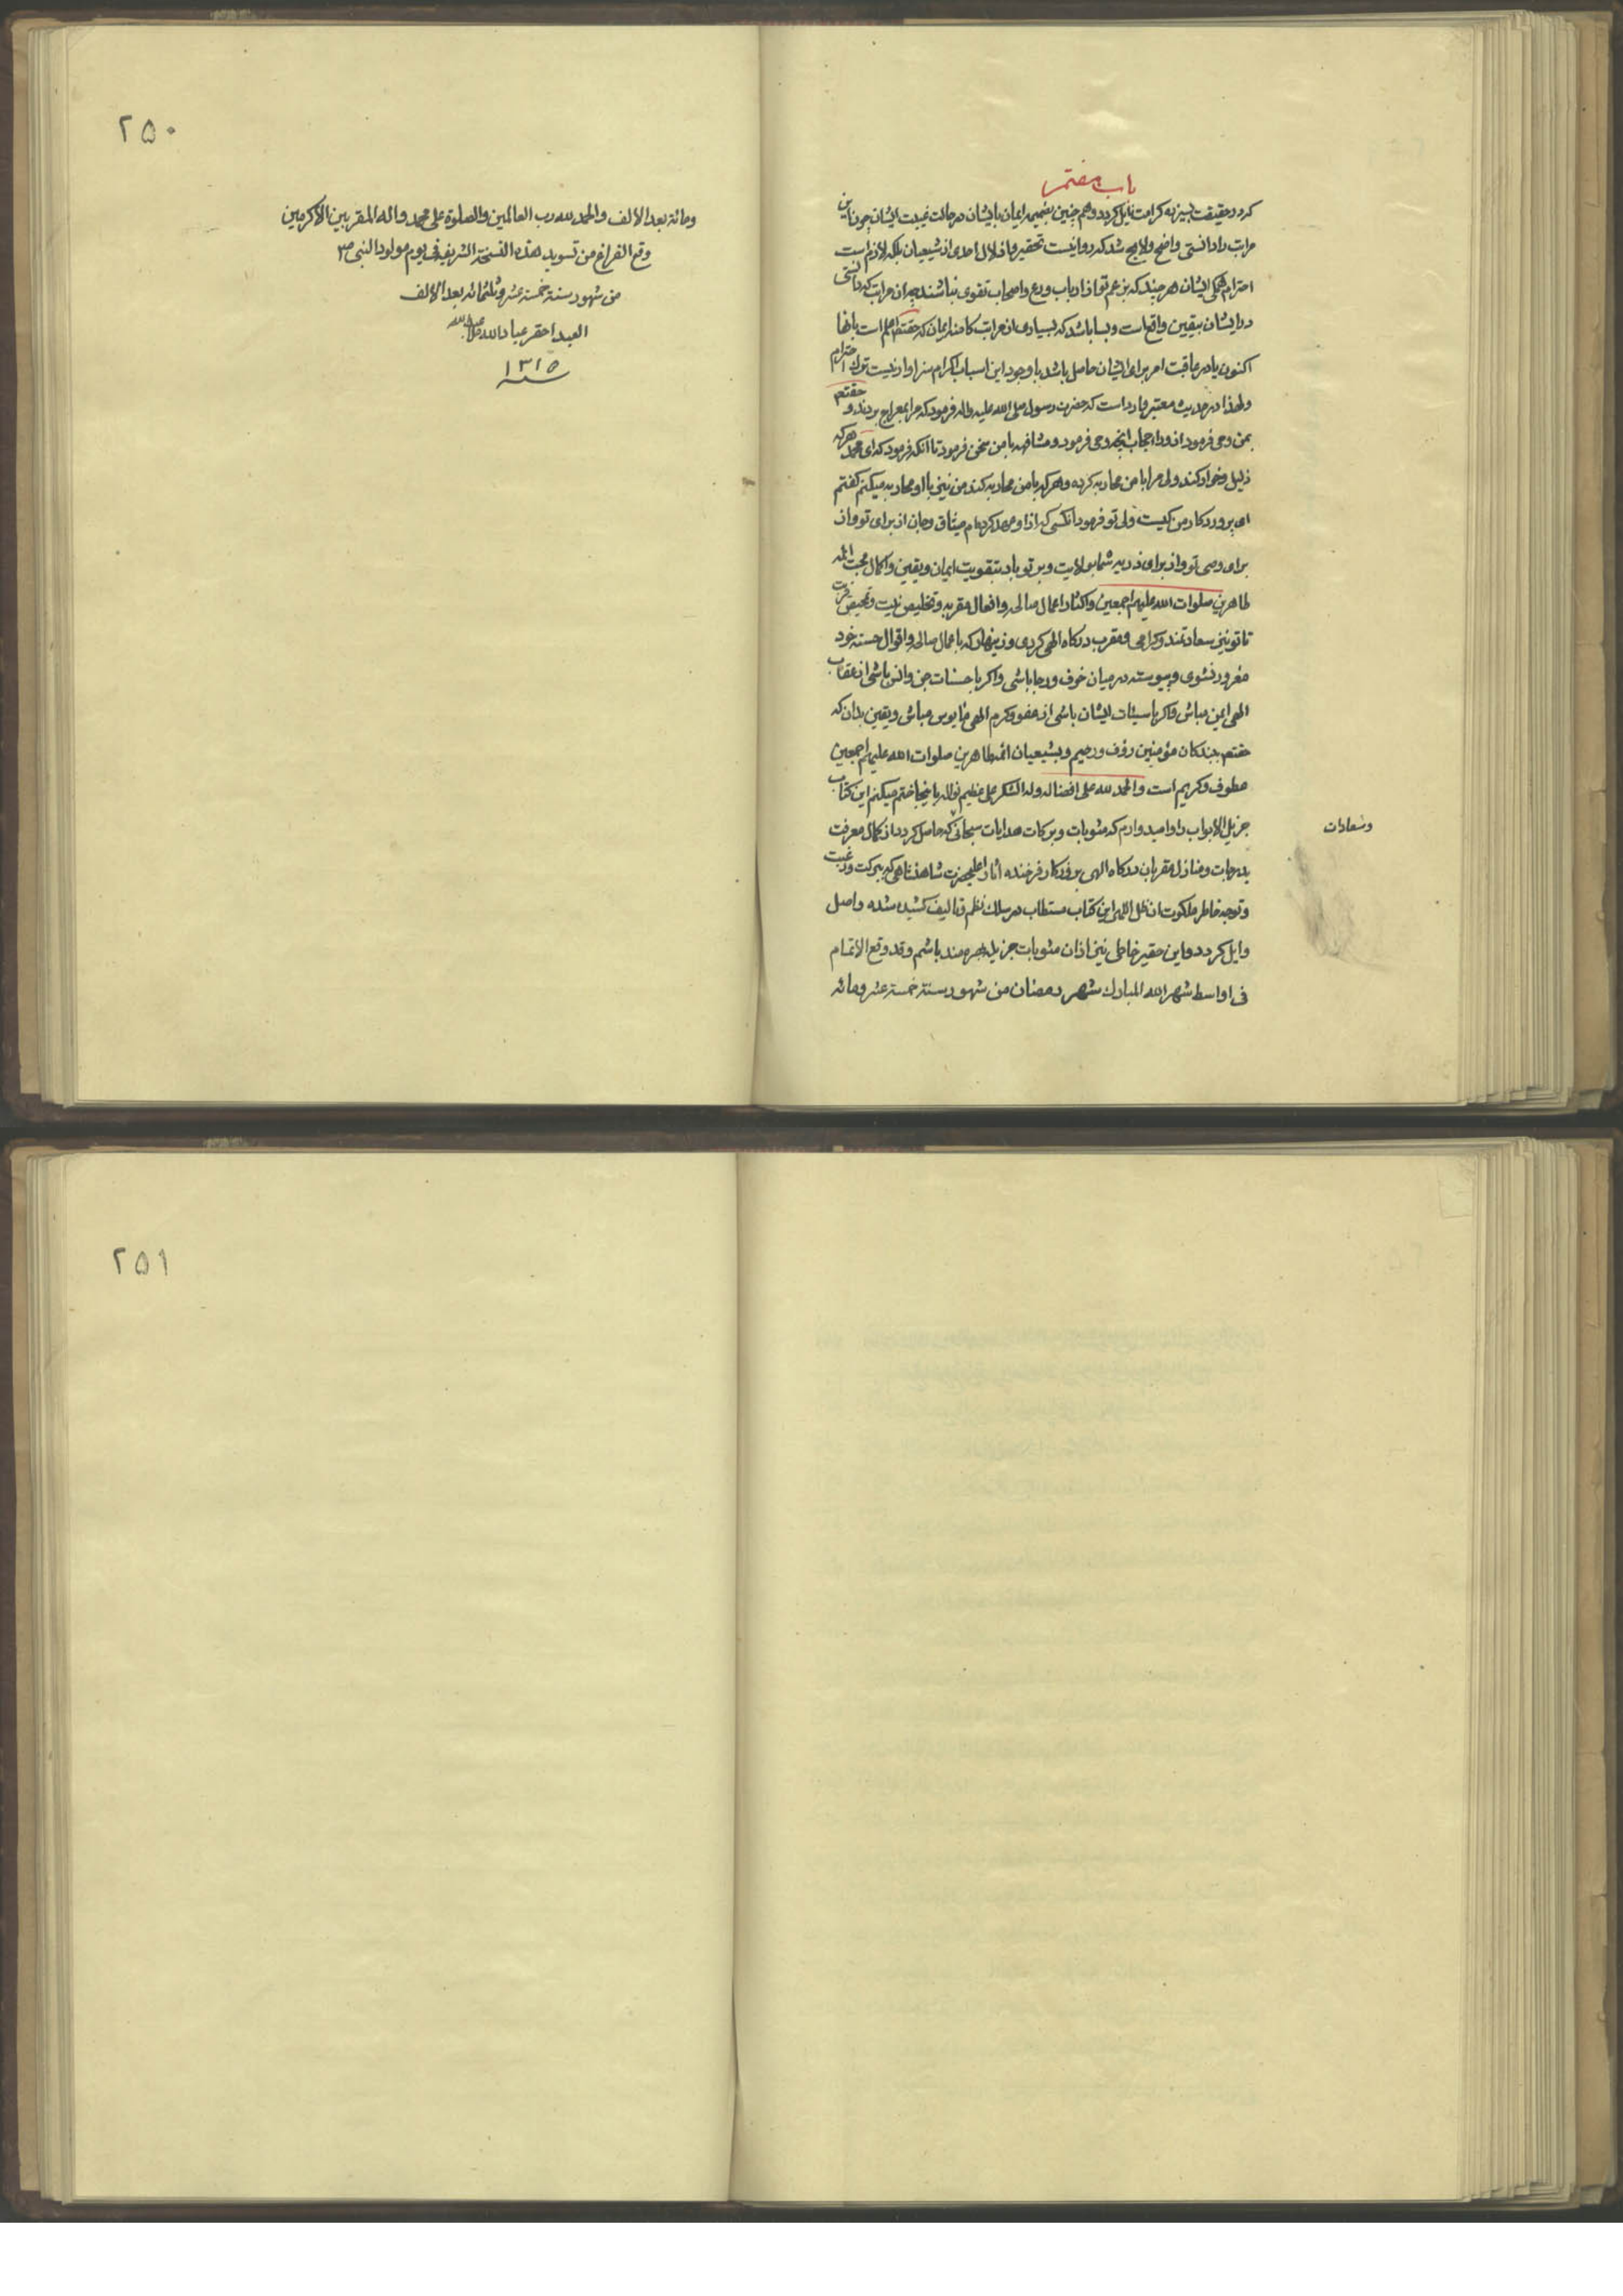 باب هفتم
کردد حقیقت بسیز به کرامت نایل کردد و هم چنین بضمیمه ایمان بایشان در حالت غیبت ایشان چون این
مراتب را دانستی واضح و لایح شد که روا نیست تحقیر و اذلال احدی از شیعیان بلکه لازم است
احترام همکی ایشان هر چند که بزعم تو از ارباب ورع و اصحاب تقوی نباشند چه ان مراتب که دانستی
در ایشان بیقین واقع است و بسا باشد که بسیاری از مراتب کامنه ایمان که حقتعالی اعلم است بانها
اکنون یا در عاقبت امر برای ایشان حاصل باشد با وجود این اسباب اکرام سزاوار نیست ترک احترام
و لهذا در حدیث معتبر وارد است که حضرت رسول صلی الله علیه واله فرمود که مرا بمعراج بردند و حقتعم
بمن وحی فرمود از وراء حجاب انچه وحی فرمود و مشافهه با من سخن فرمود تا انکه فرمود که ای محمد هر که
ذلیل و خوار کند ولی مرا با من محاربه کرده و هر که با من محاربه کند من نیز با او محاربه میکنم کفتم
ای پروردکار من کیست ولی تو فرمود انکسی که از او عهد کرده ام میثاق و جان از برای تو و از
برای وصی تو و از برای ذریه شما بولایت و بر تو باد بتقویت ایمان و یقین و اکمال محبت ائمه
طاهرین صلوات الله علیهم اجمعین و اکثار اعمال صالحه و افعال مقربه و تخلیص نیت و تمحیص قربت
تا تو نیز سعادتمند و کرامی و مقرب درکاه الهی کردی و زینهار که باعمال صالحه و اقوال حسنه خود
مغرور نشوی و پیوسته در میان خوف و رجا باشی و اکر با حسنات جن و انس باشی از عقاب
الهی ایمن مباش و اکر با سیئات ایشان باشی از عفو و کرم الهی مایوس مباش و یقین بدان که
حقتعم ببندکان مؤمنین رؤف و رحیم و بشیعیان ائمه طاهرین صلوات الله علیهم اجمعین
عطوف و کریم است و الحمد لله علی افضاله و له الشکر علی عظیم نواله باینجا ختم میکنم این کتاب
جزیل الابواب را و امیدوارم که مثوبات و برکات هدایات سبحانی که حاصل کردد از کمال معرفت
و سعادات
بدرجات و منازل مقربان درکاه الهی بروزکار فرخنده اثار اعلیحضرت شاهنشاهی که ببرکت و رغبت
و توجه خاطر ملکوت ان ظل اللهی این کتاب مستطاب در سلک نظم و تالیف کشیده شده واصل
و ایل کردد و این حقیر خاطی نیز از ان مثوبات جزیله بهره مند باشم و قد وقع الاتمام
فی اواسط شهر الله المبارک شهر رمضان من شهور سنة خمسة عشر و مائه
۲۵۰
و مائة بعد الالف والحمد لله رب العالمین والصلوة علی محمد واله المقربین الاکرمین
وقع الفراغ من تسوید هذه النسخة الشریفه فی یوم مولود النبی ص
من شهور سنة خمسة عشر و ثلثمائه بعد الالف
العبد احقر عباد الله
سنه ۱۳۱۵
۲۵۱